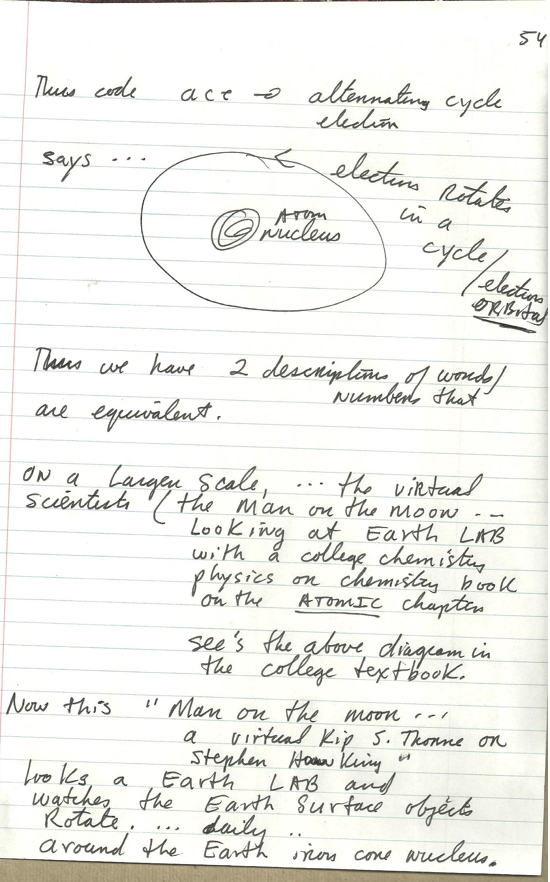 54
Thus code ace → alternating cycle
electron
says ...
electron Rotates
in a
cycle/
electron
ORBital
Atom
nucleus
Thus we have 2 descriptions of words/
numbers that
are equivalent.
ON a Larger Scale, ... the virtual
scientists (the Man on the Moon ...
Looking at Earth LAB
with a college chemistry
physics or chemistry book
on the ATOMIC chapter
see's the above diagram in
the college textbook.
Now this "Man on the moon ...
a virtual Kip S. Thorne or
Stephen Hawking"
looks a Earth LAB and
watches the Earth Surface objects
Rotate. ... daily ..
around the Earth iron core nucleus.